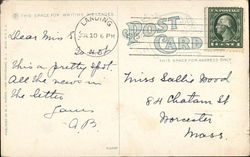 THIS SPACE FOR WRITING MESSAGES
LANDING
10 6 PM
POST
CARD
THIS SPACE FOR ADDRESS ONLY
Dear Miss
This a pretty spot
All the news in
the letter
Miss Sallie Wood
84 Chatam St
Worcester
Mass.